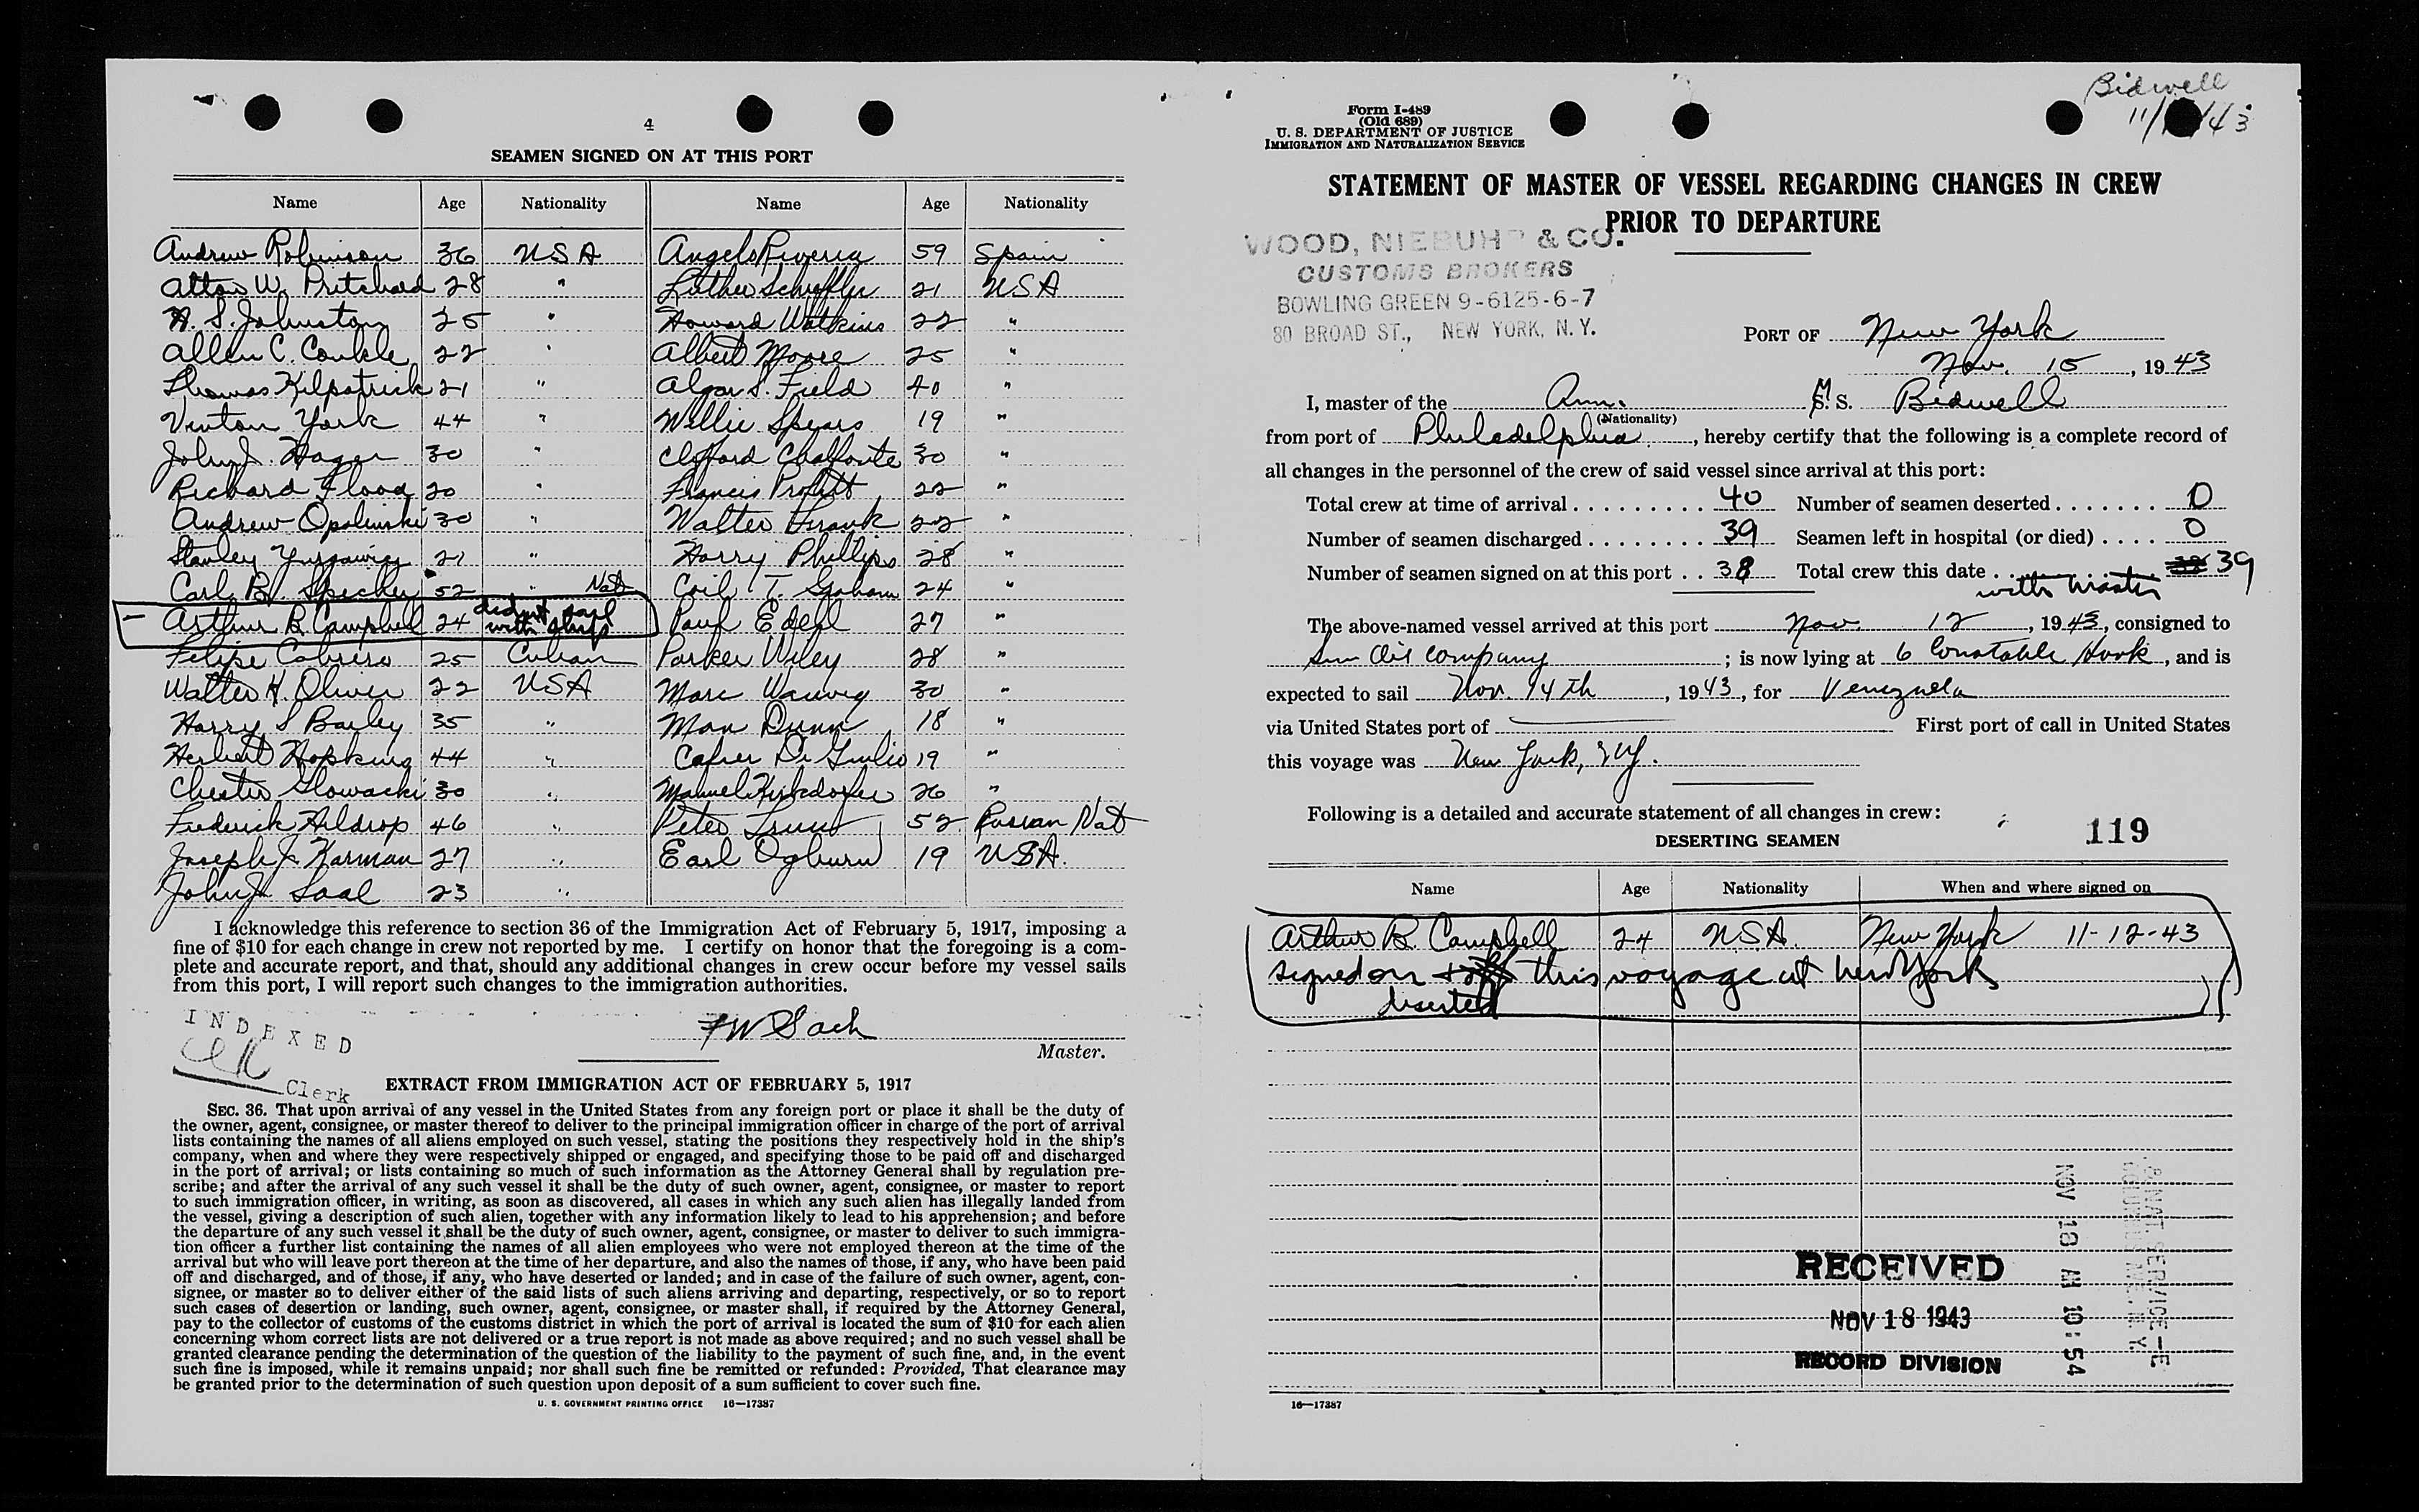 4
SEAMEN SIGNED ON AT THIS PORT
Name Age Nationality Name Age Nationality
Andrew Robinson 36 USA Angelo Riveria 59 Spain
Alton W. Pritchard 28 " Luther Scheffler 21 USA
H. S. Johnston 25 " Howard Watkins 22 "
Allen C. Conkle 22 " Albert Moore 25 "
Thomas Kilpatrick 21 " Algar S. Field 40 "
Vinton York 44 " Willie Spears 19 "
John J. Hager 30 " Clifford Chalfonte 30 "
Richard Flood 20 " Francis Profitt 22 "
Andrew Opalinski 30 " Walter Frank 22 "
Stanley 21 " Harry Phillips 28 "
Carl B. Specker 52 " Nat Coil T. Graham 24 "
- Arthur B. Campbell 24 didnt sail with ship Paul Edell 27 "
Felipe Cabrera 25 Cuban Parker Wiley 28 "
Walter H. Oliver 22 USA Marc 30 "
Harry S Bailey 35 " Man Dunn 18 "
Herbert Hopkins 44 " Di Giulio 19 "
Chester Glowacki 30 " Manuel Kirkdorfer 26 "
Frederick Hildrop 46 " Peter 52 Russian Nat
Joseph J. Karman 27 " Earl Ogburn 19 USA.
John J. Saal 23 "
I acknowledge this reference to section 36 of the Immigration Act of February 5, 1917, imposing a
fine of $10 for each change in crew not reported by me. I certify on honor that the foregoing is a com-
plete and accurate report, and that, should any additional changes in crew occur before my vessel sails
from this port, I will report such changes to the immigration authorities.
FW Sach
Master.
INDEXED
Clerk
EXTRACT FROM IMMIGRATION ACT OF FEBRUARY 5, 1917
SEC. 36. That upon arrival of any vessel in the United States from any foreign port or place it shall be the duty of
the owner, agent, consignee, or master thereof to deliver to the principal immigration officer in charge of the port of arrival
lists containing the names of all aliens employed on such vessel, stating the positions they respectively hold in the ship's
company, when and where they were respectively shipped or engaged, and specifying those to be paid off and discharged
in the port of arrival; or lists containing so much of such information as the Attorney General shall by regulation pre-
scribe; and after the arrival of any such vessel it shall be the duty of such owner, agent, consignee, or master to report
to such immigration officer, in writing, as soon as discovered, all cases in which any such alien has illegally landed from
the vessel, giving a description of such alien, together with any information likely to lead to his apprehension; and before
the departure of any such vessel it shall be the duty of such owner, agent, consignee, or master to deliver to such immigra-
tion officer a further list containing the names of all alien employees who were not employed thereon at the time of the
arrival but who will leave port thereon at the time of her departure, and also the names of those, if any, who have been paid
off and discharged, and of those, if any, who have deserted or landed; and in case of the failure of such owner, agent, con-
signee, or master so to deliver either of the said lists of such aliens arriving and departing, respectively, or so to report
such cases of desertion or landing, such owner, agent, consignee, or master shall, if required by the Attorney General,
pay to the collector of customs of the customs district in which the port of arrival is located the sum of $10 for each alien
concerning whom correct lists are not delivered or a true report is not made as above required; and no such vessel shall be
granted clearance pending the determination of the question of the liability to the payment of such fine, and, in the event
such fine is imposed, while it remains unpaid; nor shall such fine be remitted or refunded: Provided, That clearance may
be granted prior to the determination of such question upon deposit of a sum sufficient to cover such fine.
U. S. GOVERNMENT PRINTING OFFICE 16—17387
Bidwell
11/ /43
Form I-489
(Old 689)
U. S. DEPARTMENT OF JUSTICE
IMMIGRATION AND NATURALIZATION SERVICE
STATEMENT OF MASTER OF VESSEL REGARDING CHANGES IN CREW
PRIOR TO DEPARTURE
WOOD, NIEBUHR & CO.
CUSTOMS BROKERS
BOWLING GREEN 9-6125-6-7
80 BROAD ST., NEW YORK, N. Y.
PORT OF New York
Nov. 15, 1943
I, master of the Am. M. S. Bidwell
(Nationality)
from port of Philadelphia, hereby certify that the following is a complete record of
all changes in the personnel of the crew of said vessel since arrival at this port:
Total crew at time of arrival 40 Number of seamen deserted 0
Number of seamen discharged 39 Seamen left in hospital (or died) 0
Number of seamen signed on at this port 38 Total crew this date 39
with Master
The above-named vessel arrived at this port Nov 12, 1943, consigned to
Sun Oil Company; is now lying at 6 Constable Hook, and is
expected to sail Nov. 14th, 1943, for Venezuela
via United States port of First port of call in United States
this voyage was New York, NY.
Following is a detailed and accurate statement of all changes in crew:
119
DESERTING SEAMEN
Name Age Nationality When and where signed on
Arthur B. Campbell 24 USA. New York 11-12-43
signed on + off this voyage at New York
deserted
RECEIVED
NOV 18 1943
RECORD DIVISION
NOV 18 AM 10:54
& NAT. SERVICE
16—17387